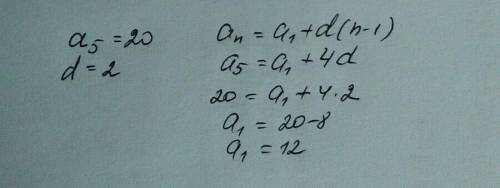 a₅ = 20
d = 2
aₙ = a₁ + d(n-1)
a₅ = a₁ + 4d
20 = a₁ + 4·2
a₁ = 20-8
a₁ = 12